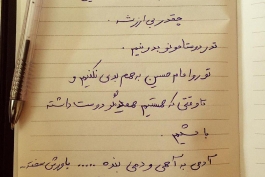 چقدر بی ارزشه .
قدر دوستامونو بدونیم .
تورو امام حسین برهم بدی نکنیم و
تا وقتی که هستیم همدیگر دوست داشته
باشیم .
آدمی به آهی و دمی بنده ..... باورش سخته ...